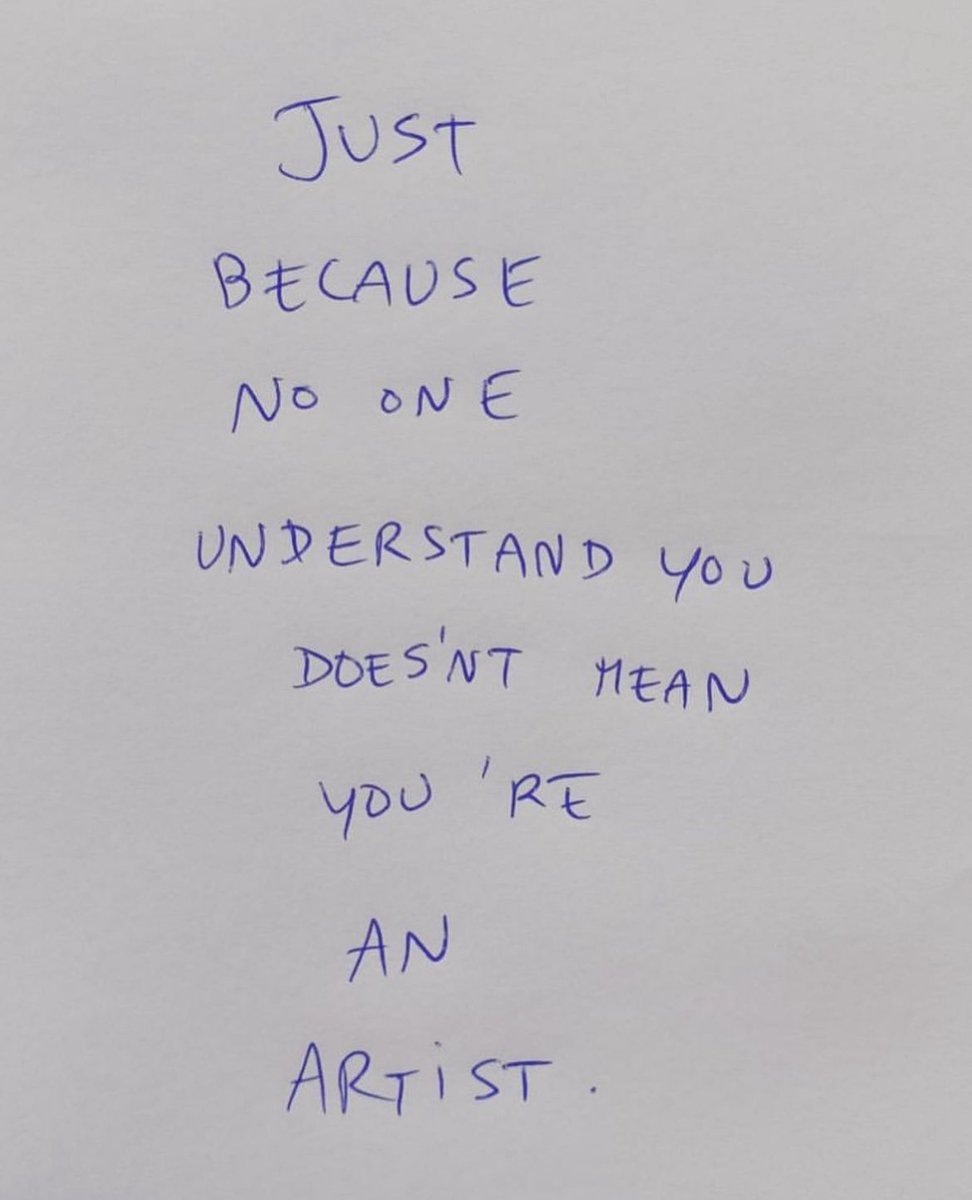 JUST
BECAUSE
NO ONE
UNDERSTAND YOU
DOES'NT MEAN
YOU'RE
AN
ARTiST.